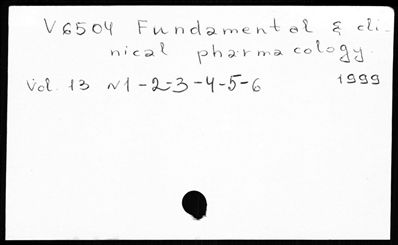 V6504 Fundamental & cli-
nical pharmacology.
Vol. 13 N1-2-3-4-5-6 1999